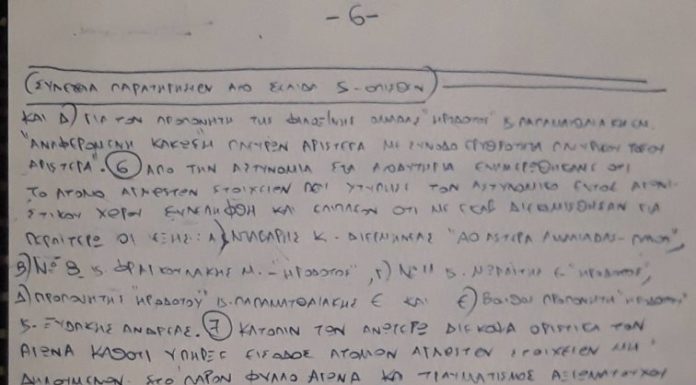 -6-
(ΣΥΝΕΧΕΙΑ ΠΑΡΑΤΗΡΗΣΕΩΝ ΑΠΟ ΣΕΛΙΔΑ 5-ΟΠΙΣΘΕΝ)
ΚΑΙ Δ) ΓΙΑ ΤΟΝ ΠΡΟΠΟΝΗΤΗ ΤΗΣ ΦΙΛΟΞ/ΝΗΣ ΟΜΑΔΑΣ "ΗΡΟΔΟΤΟΥ" κ. ΠΑΠΑΜΑΤΘΑΙΑΚΗ ΕΜ.
"ΑΝΑΦΕΡΟΜΕΝΗ ΚΑΚΩΣΗ ΠΛΕΥΡΩΝ ΑΡΙΣΤΕΡΑ ΜΕ ΣΥΝΟΔΟ ΕΡΥΘΡΟΤΗΤΑ ΠΛΕΥΡΙΚΟΥ ΤΟΞΟΥ
ΑΡΙΣΤΕΡΑ". 6) ΑΠΟ ΤΗΝ ΑΣΤΥΝΟΜΙΑ ΣΤΑ ΑΠΟΔΥΤΗΡΙΑ ΕΝΗΜΕΡΩΘΗΚΑΜΕ ΟΤΙ
ΤΟ ΑΤΟΜΟ ΑΓΝΩΣΤΩΝ ΣΤΟΙΧΕΙΩΝ ΠΟΥ ΧΤΥΠΗΣΕ ΤΟΝ ΑΣΤΥΝΟΜΙΚΟ ΕΝΤΟΣ ΑΓΩΝΙ-
ΣΤΙΚΟΥ ΧΩΡΟΥ ΣΥΝΕΛΗΦΘΗ ΚΑΙ ΕΠΙΠΛΕΟΝ ΟΤΙ ΜΕ ΕΚΑΒ ΔΙΕΚΟΜΙΣΘΗΣΑΝ ΓΙΑ
ΠΕΡΑΙΤΕΡΩ ΟΙ ΕΞΗΣ: Α) Κ. ΔΙΕΡΜΗΝΕΑΣ "ΑΟ ΑΣΤΕΡΑ
Β) Νο 8 κ. ΦΡΑΓΚΟΥΛΑΚΗΣ Μ. - "ΗΡΟΔΟΤΟΣ", Γ) Νο 11 κ. Ε "ΗΡΟΔΟΤΟΣ",
Δ) ΠΡΟΠΟΝΗΤΗΣ "ΗΡΟΔΟΤΟΥ" κ. ΠΑΠΑΜΑΤΘΑΙΑΚΗΣ Ε ΚΑΙ Ε) ΒΟΗΘΟΣ ΠΡΟΠΟΝΗΤΗ "ΗΡΟΔΟΤΟΥ"
κ. ΞΥΔΑΚΗΣ ΑΝΔΡΕΑΣ. 7) ΚΑΤΟΠΙΝ ΤΩΝ ΑΝΩΤΕΡΩ ΔΙΕΚΟΨΑ ΟΡΙΣΤΙΚΑ ΤΟΝ
ΑΓΩΝΑ ΚΑΘΟΤΙ ΥΠΗΡΞΕ ΕΙΣΟΔΟΣ ΑΤΟΜΩΝ ΑΓΝΩΣΤΩΝ ΣΤΟΙΧΕΙΩΝ ΜΗ
ΔΗΛΟΥΜΕΝΩΝ ΣΤΟ ΠΑΡΟΝ ΦΥΛΛΟ ΑΓΩΝΑ ΚΑΙ ΤΡΑΥΜΑΤΙΣΜΟΣ ΑΞΙΩΜΑΤΟΥΧΟΥ